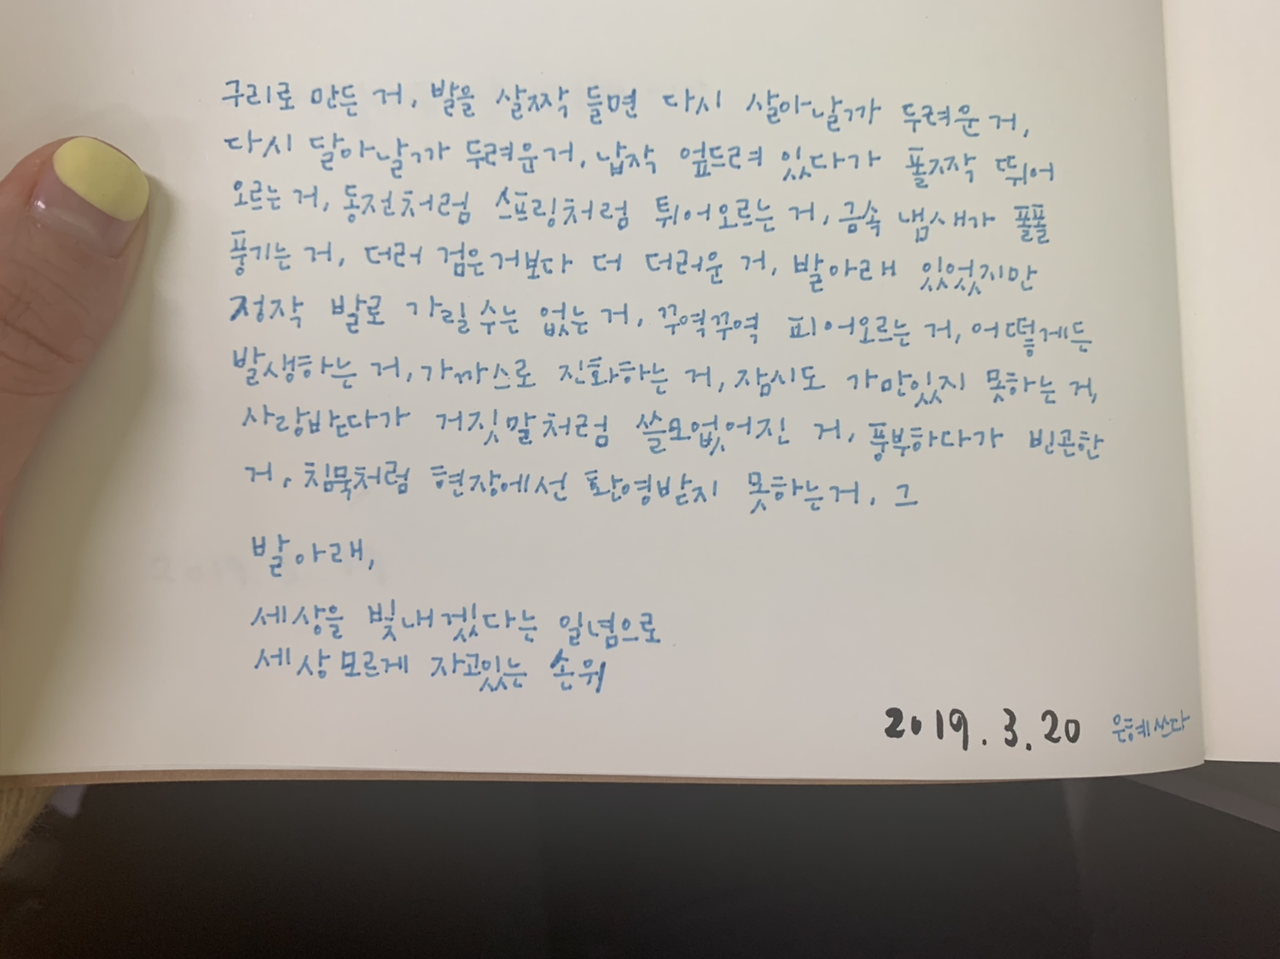 구리로 만든 거, 발을 살짝 들면 다시 살아날까 두려운 거,
다시 달아날까 두려운 거, 납작 엎드려 있다가 폴짝 뛰어
오르는 거, 동전처럼 스프링처럼 튀어오르는 거, 금속 냄새가 폴폴
풍기는 거, 더러 검은 거보다 더 더러운 거, 발 아래 있었지만
정작 발로 가릴 수는 없는 거, 꾸역꾸역 피어오르는 거, 어떻게든
발생하는 거, 가까스로 진화하는 거, 잠시도 가만있지 못하는 거,
사랑받다가 거짓말처럼 쓸모없어진 거, 풍부하다가 빈곤한
거, 침묵처럼 현장에선 환영받지 못하는 거, 그
발 아래,
세상을 빛내겠다는 일념으로
세상 모르게 자고있는 손위
2019. 3. 20 은혜 쓰다